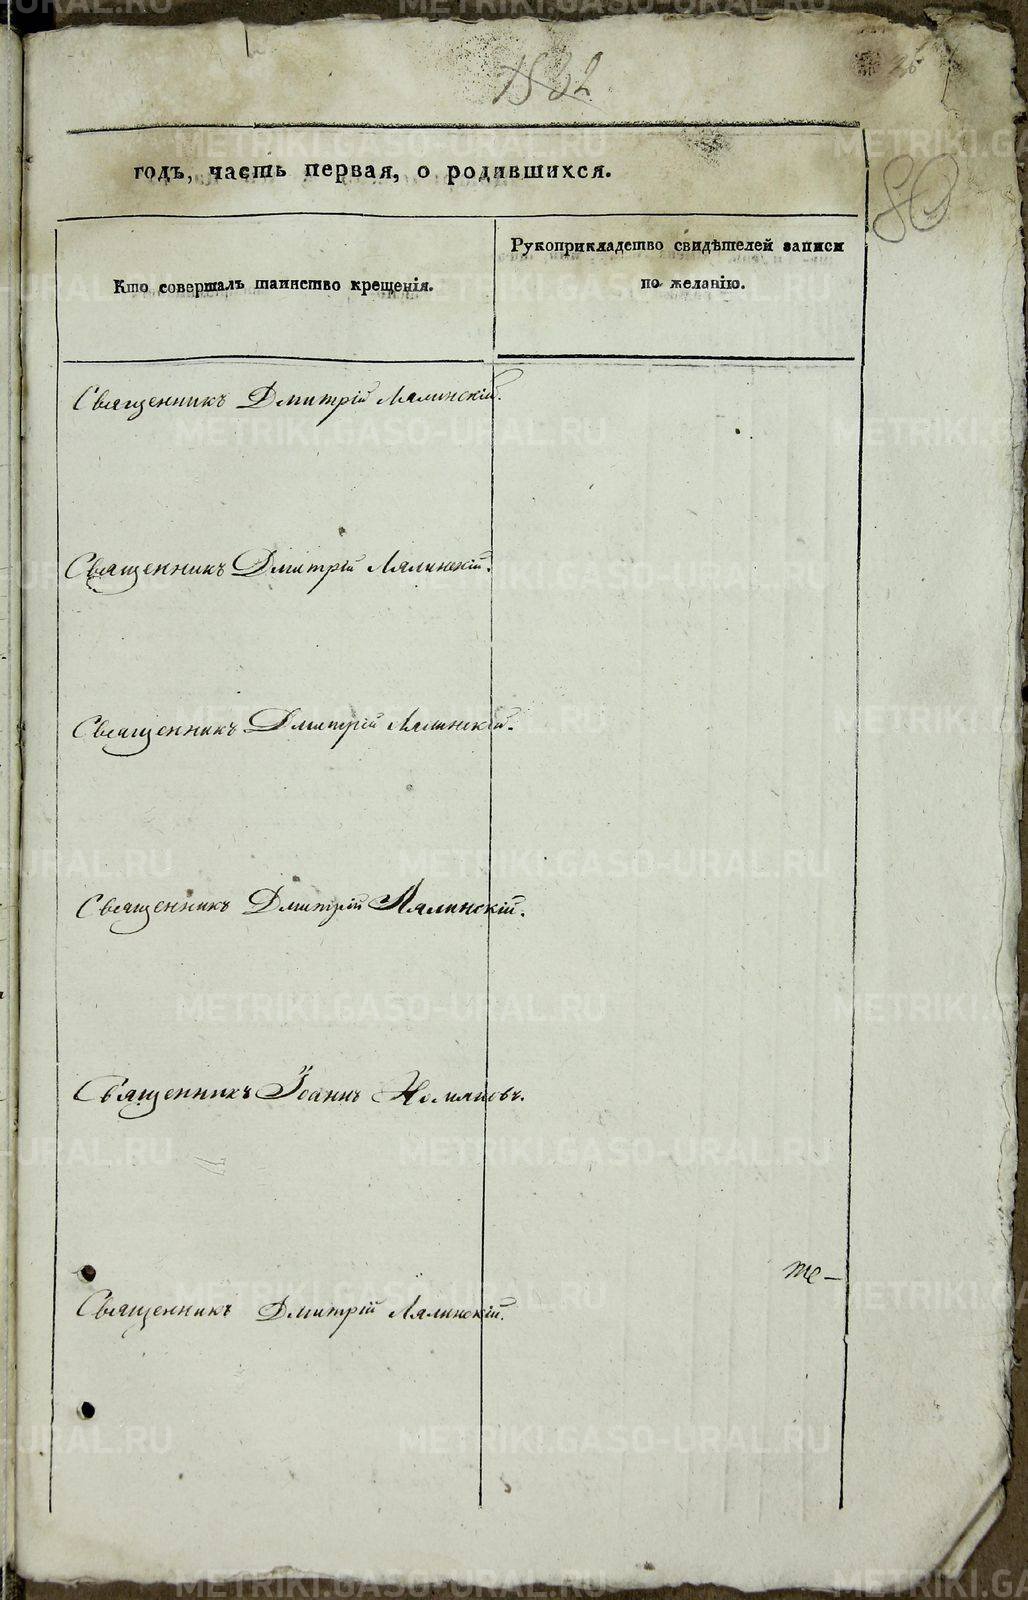 1832
80
годъ, часть первая, о родившихся.
Кто совершалъ таинство крещенія.
Рукоприкладство свидѣтелей записи
по желанію.
Священникъ Дмитрій Лялинскій.
Священникъ Дмитрій Лялинскій.
Священникъ Дмитрій Лялинскій.
Священникъ Дмитрій Лялинскій.
Священникъ Іоаннъ
Священникъ Дмитрій Лялинскій.
METRIKI.GASO-URAL.RU